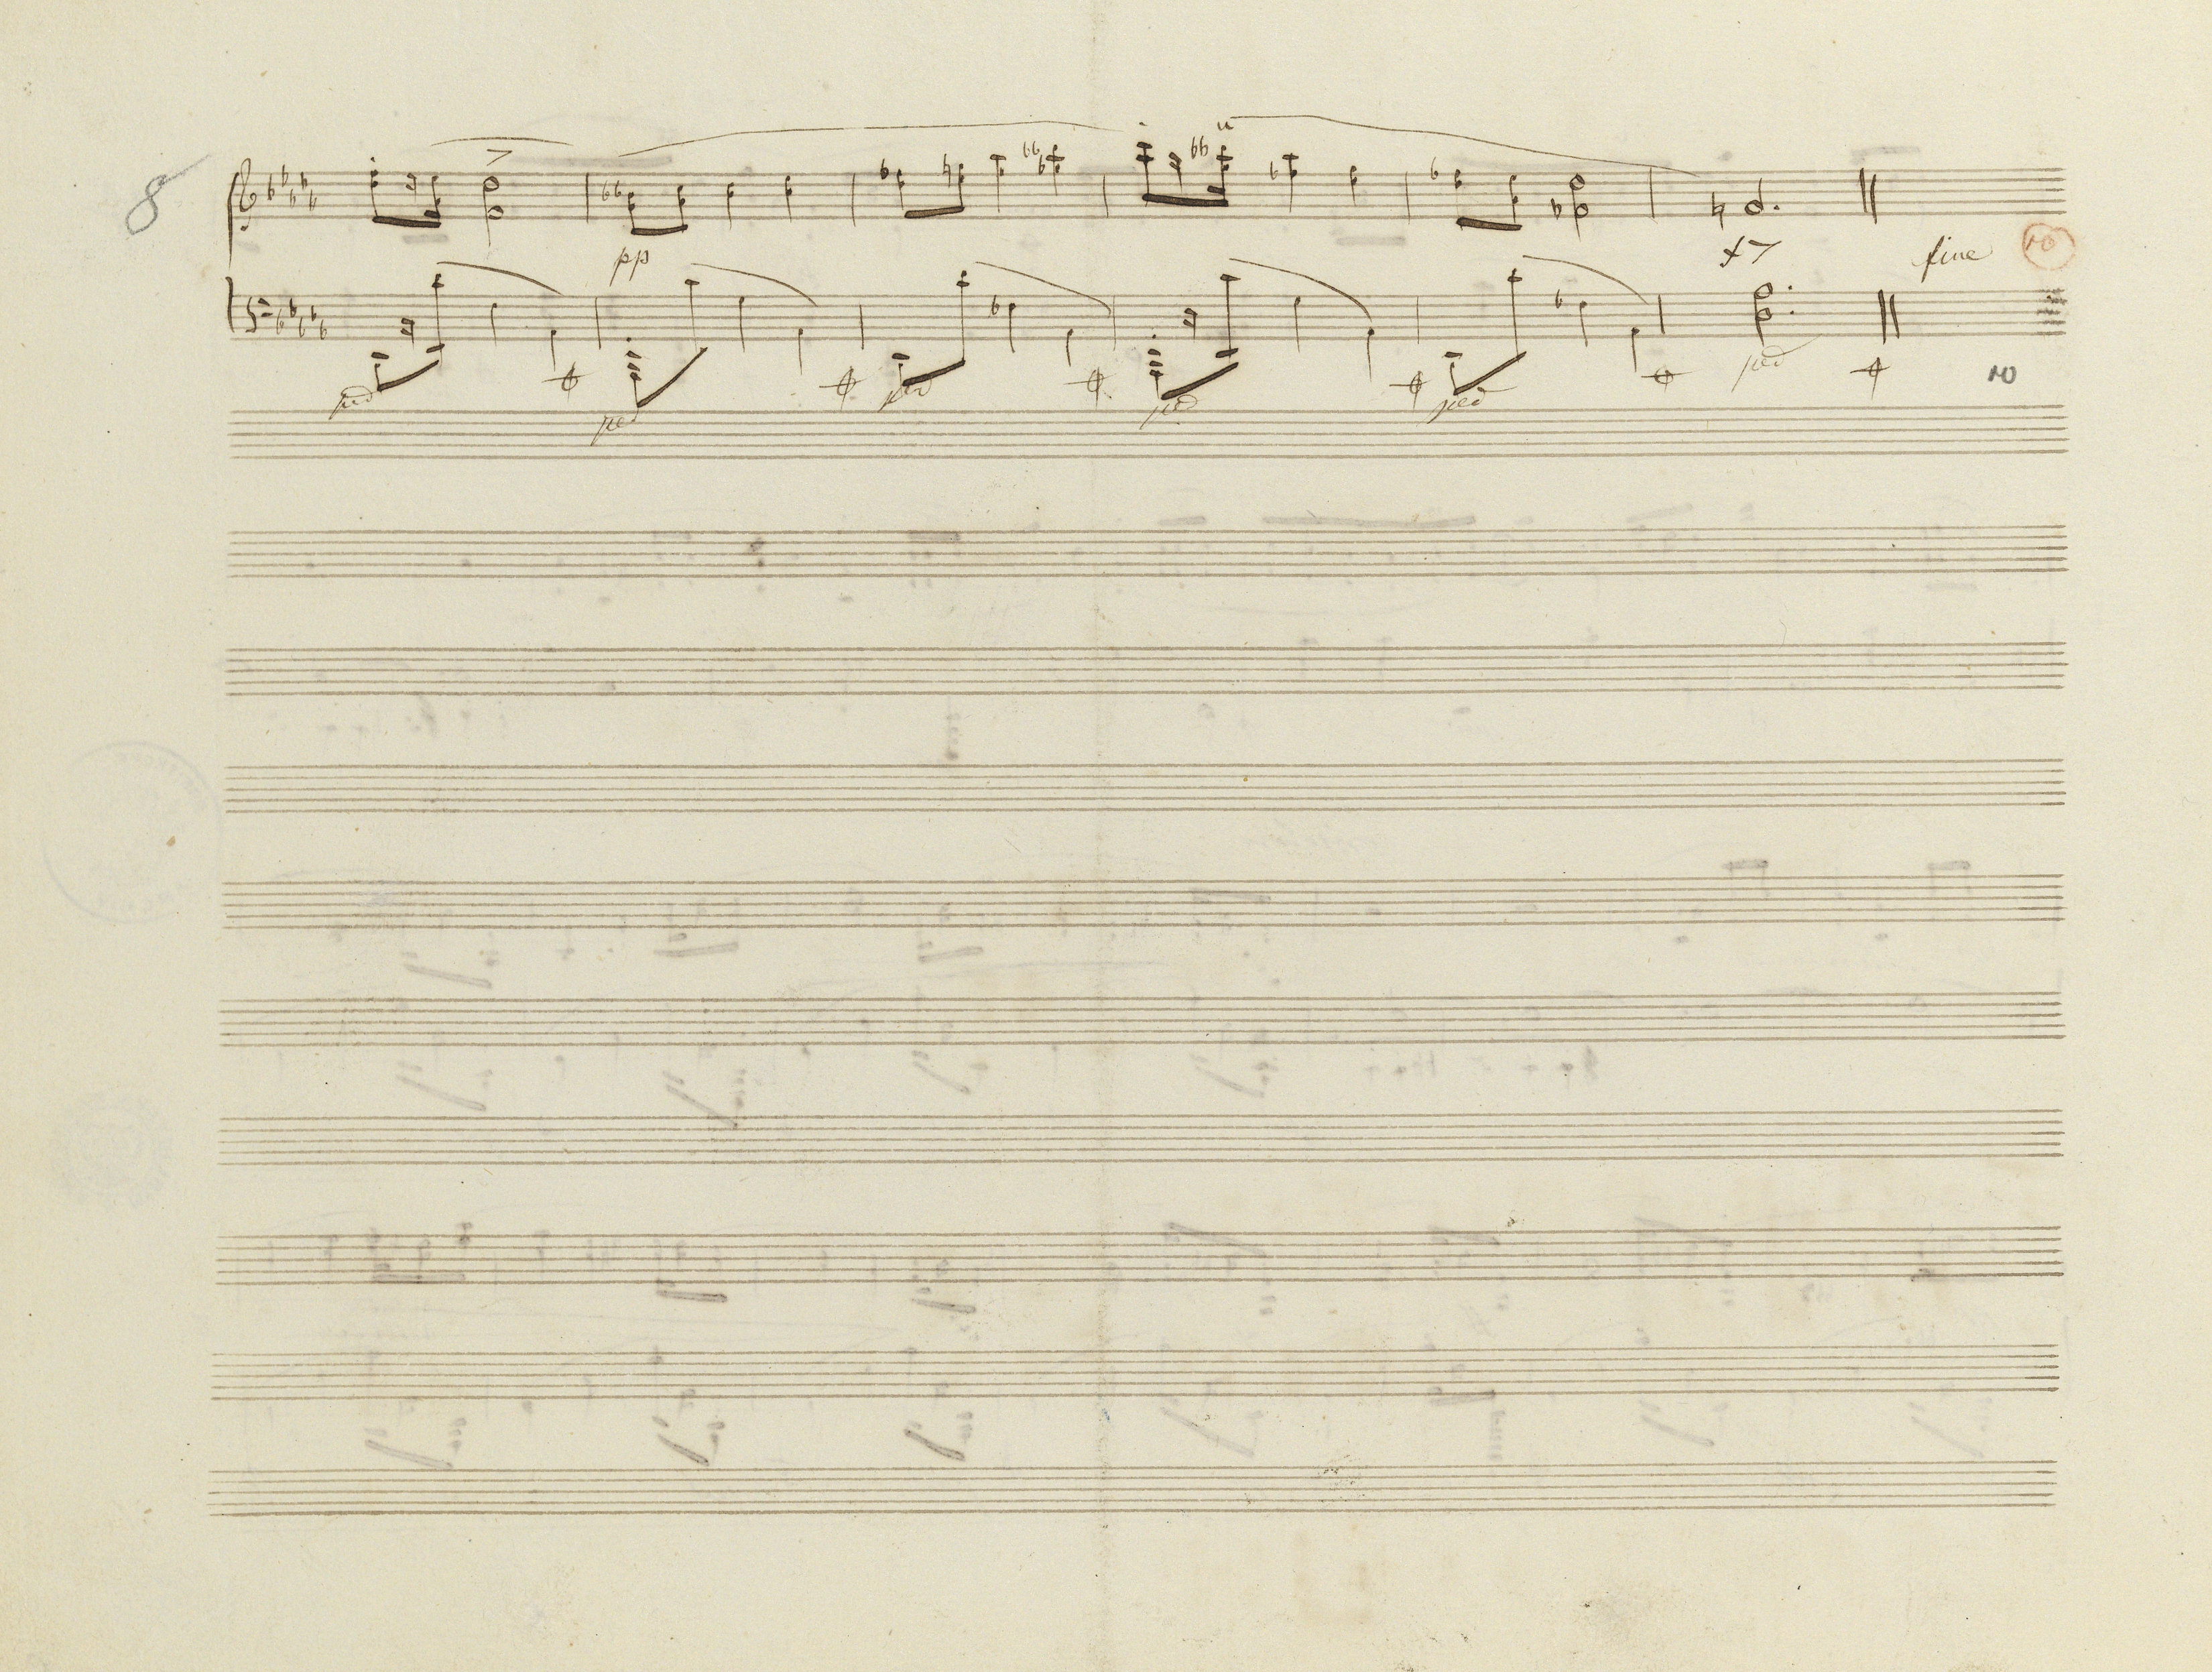 8
pp
fine
10
ped
ped
ped
ped
ped
ped
10